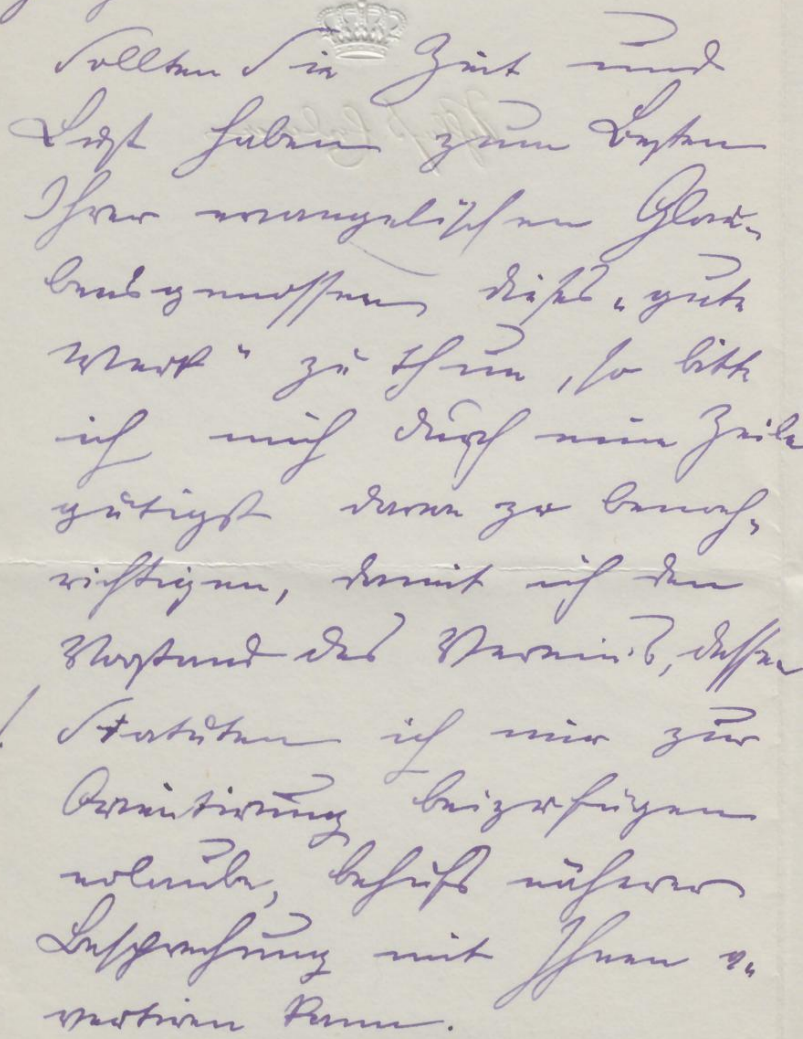 Sollten Sie Zeit und
Lust haben zum Besten
Ihrer evangelischen Glau-
bensgenossen dieses „gute
Werk" zu thun, so bitte
ich mich durch eine Zeile
gütigst davon zu benach-
richtigen, damit ich den
Vorstand des Vereins, dessen
Statuten ich mir zur
Orientirung beizufügen
erlaube, behufs näherer
Besprechung mit Ihnen a-
vertiren kann.